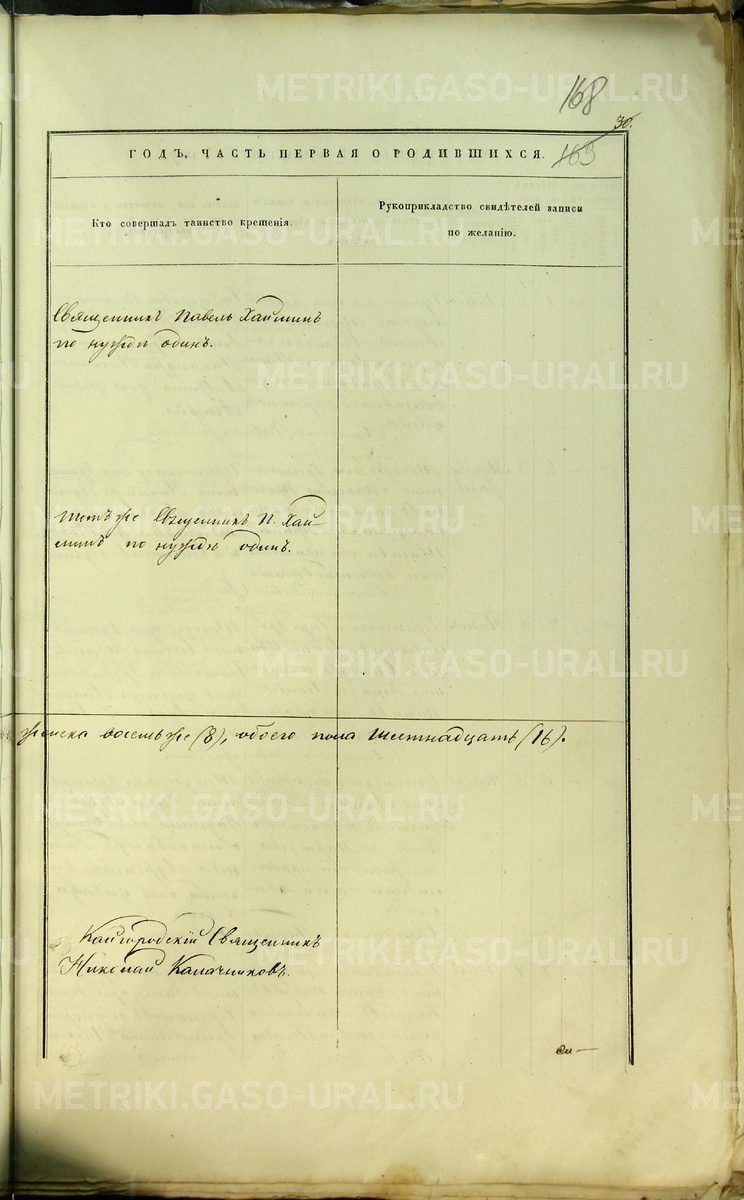 168
30.
163
ГОДЪ, ЧАСТЬ ПЕРВАЯ О РОДИВШИХСЯ.
Кто совершалъ таинство крещенія.
Рукоприкладство свидѣтелей записи
по желанію.
Священникъ Павелъ Хайминъ
по нуждѣ одинъ.
тотъ же Священникъ П. Хай-
минъ по нуждѣ одинъ.
женска восемь же (8), обоего пола шестнадцать (16).
Кайгородскій Священникъ
Николай Калачниковъ.
METRIKI.GASO-URAL.RU